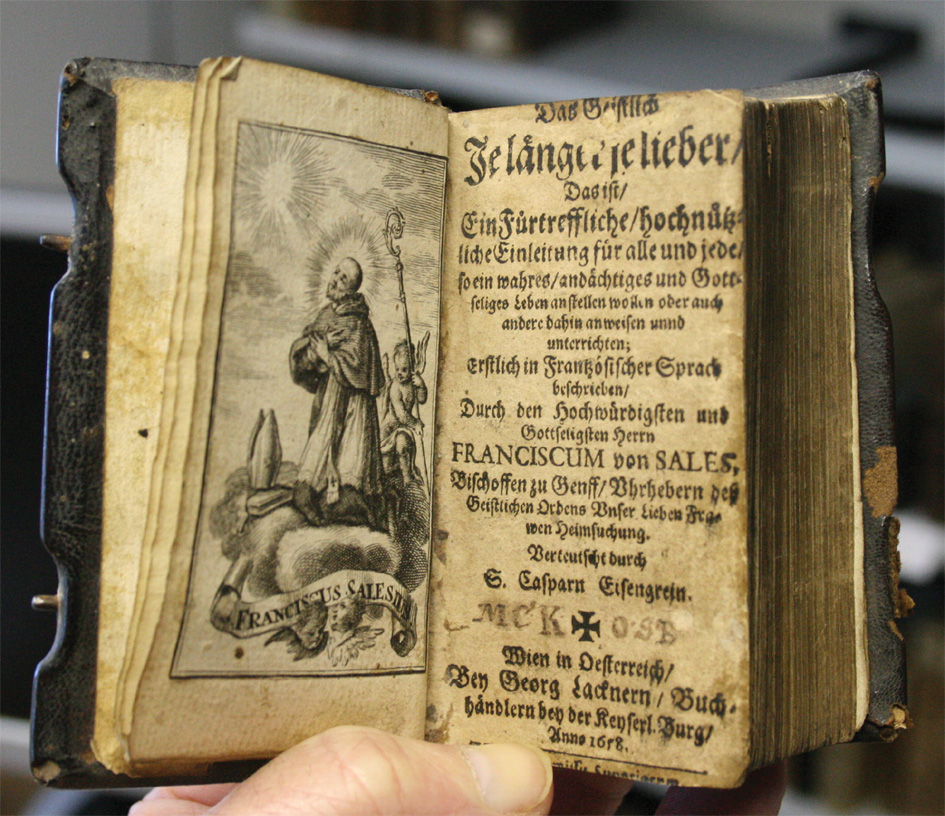 FRANCISCUS SALESIUS
Das Geistlich
Je länger je lieber/
Das ist/
Ein Fürtreffliche/hochnütz-
liche Einleitung für alle und jede/
so ein wahres/andächtiges und Gott-
seliges Leben anstellen wollen oder auch
andere dahin anweisen unnd
unterrichten;
Erstlich in Frantzösischer Sprach
beschrieben/
Durch den Hochwürdigsten und
Gottseligsten Herrn
FRANCISCUM von SALES,
Bischoffen zu Genff/Uhrhebern deß
Geistlichen Ordens Unser Lieben Fra-
wen Heimsuchung.
Verteutscht durch
S. Casparn Eisengrein.
MCK ✠ OSB
Wien in Oesterreich/
Bey Georg Lacknern/ Buch-
händlern bey der Keyserl. Burg/
Anno 1658.